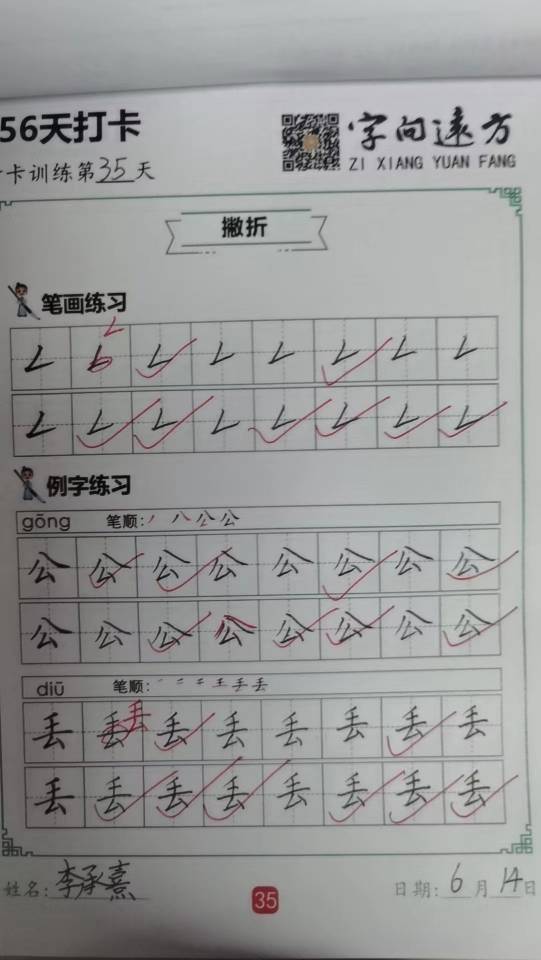 56天打卡
字向遠方
ZI XIANG YUAN FANG
卡训练第35天
撇折
笔画练习
例字练习
gōng 笔顺:
公 公 公 公 公 公 公 公
公 公 公 公 公 公 公 公
diū 笔顺:
丢 丢 丢 丢 丢 丢 丢 丢 丢
丢 丢 丢 丢 丢 丢 丢 丢
姓名: 李承熹
35
日期: 6月14日